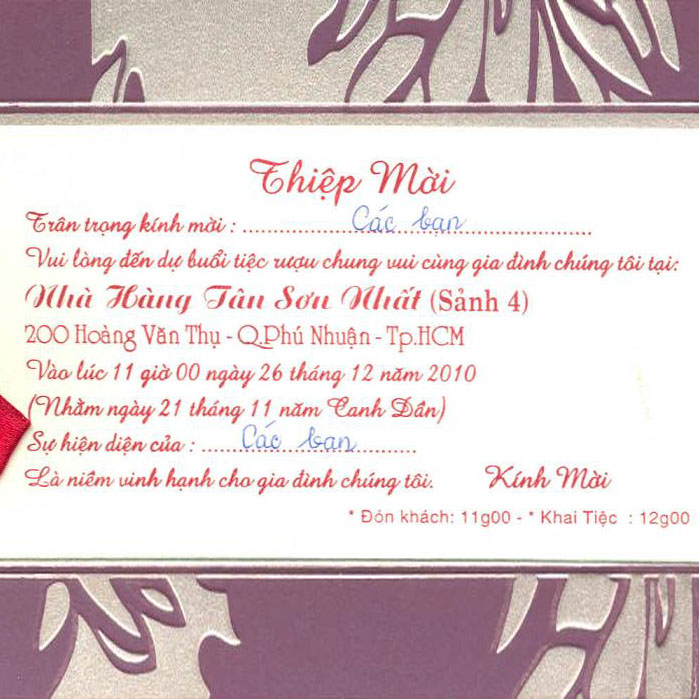 Thiệp Mời
Trân trọng kính mời : .................. Các bạn ......................
Vui lòng đến dự buổi tiệc rượu chung vui cùng gia đình chúng tôi tại:
Nhà Hàng Tân Sơn Nhất (Sảnh 4)
200 Hoàng Văn Thụ - Q.Phú Nhuận - Tp.HCM
Vào lúc 11 giờ 00 ngày 26 tháng 12 năm 2010
(Nhằm ngày 21 tháng 11 năm Canh Dần)
Sự hiện diện của : ...... Các bạn ..........
Là niềm vinh hạnh cho gia đình chúng tôi. Kính Mời
* Đón khách: 11g00 - * Khai Tiệc : 12g00